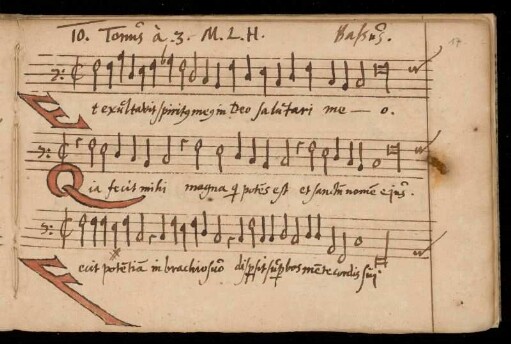 10. Tonus à .3. M. L. H. Bassus. 17.
Et exultavit spiritus meus in Deo salutari me — o.
Quia fecit mihi magna qui potens est et sanctum nomen ejus.
Fecit potentiam in brachio suo dispersit superbos mente cordis sui.